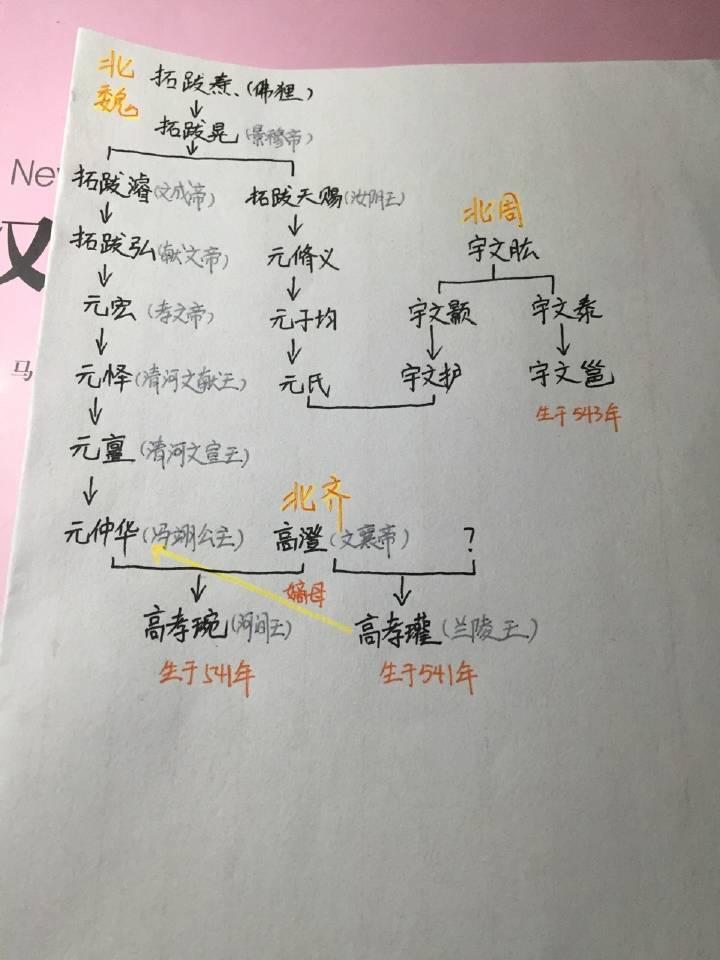 北魏
拓跋焘(佛狸)
拓跋晃(景穆帝)
New
汉
拓跋濬(文成帝) 拓跋天赐(汝阴王)
北周
拓跋弘(献文帝) 元脩义 宇文肱
元宏(孝文帝) 元子均 宇文颢 宇文泰
马
元怿(清河文献王) 元氏 宇文护 宇文邕
生于543年
元亶(清河文宣王)
北齐
元仲华(冯翊公主) 高澄(文襄帝) ?
嫡母
高孝琬(河间王) 高孝瓘(兰陵王)
生于541年 生于541年